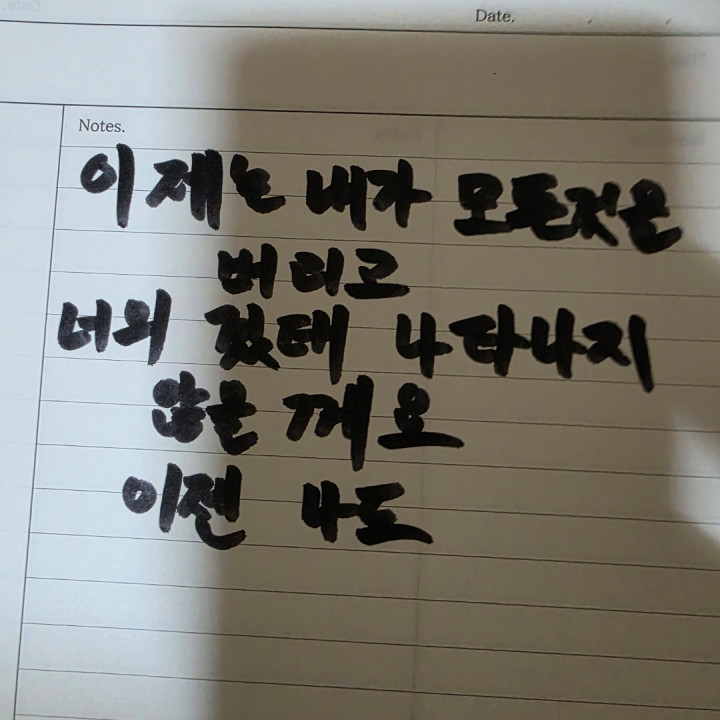 Date.
Notes.
이제는 내가 모든것은
버리고
너의 나타나지
않은께요
이젠 나도